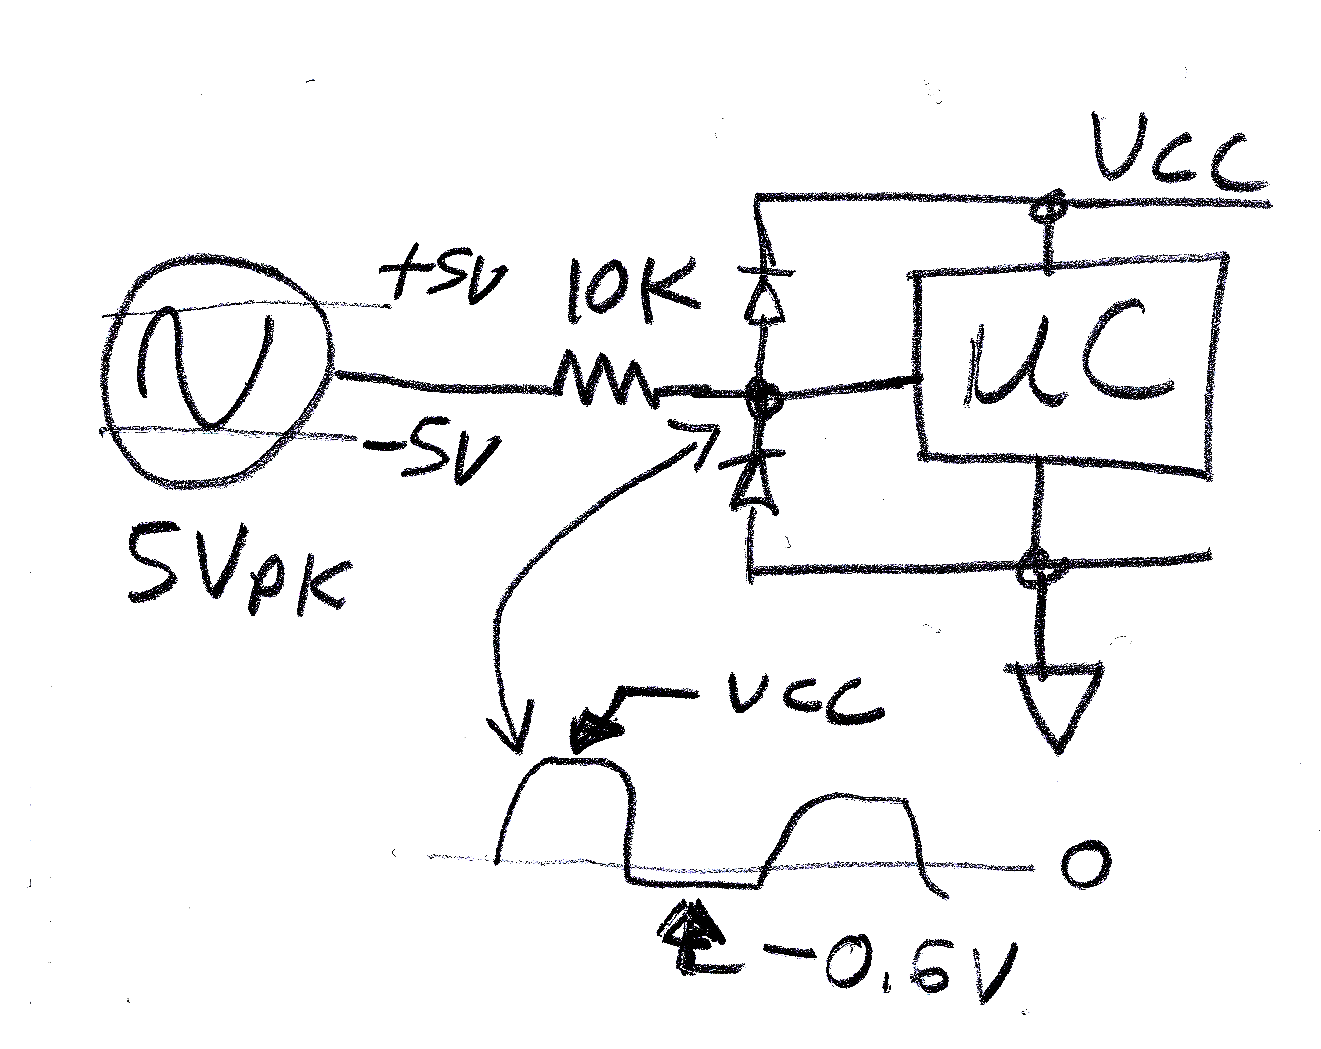 VCC
+5V
10K
µC
-5V
5VPK
VCC
0
-0.6V